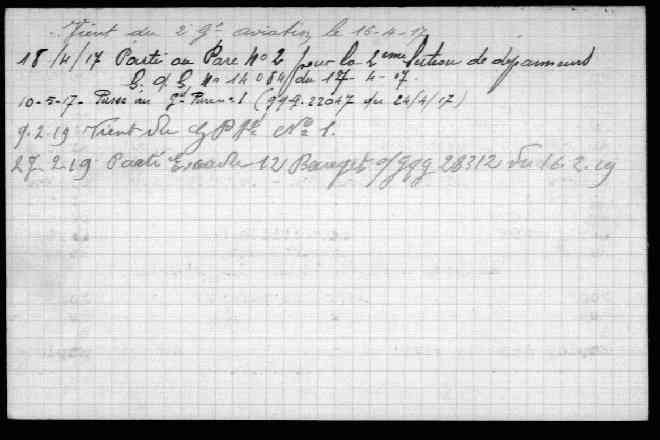 Vient du 2e Gt aviation le 16-4-17
18/4/17 Parti au Parc No 2 pour la 2eme Section de dépanneurs
G. Q. G. No 14084 du 17-4-17.
10-5-17- Passé au Gd Parc No 1 (GQG. 22047 du 24/4/17)
9.2.19 Vient du G P No 1.
27.2.19 Parti Escadre 12 Bourget o/ GQG 28312 du 16.2.19